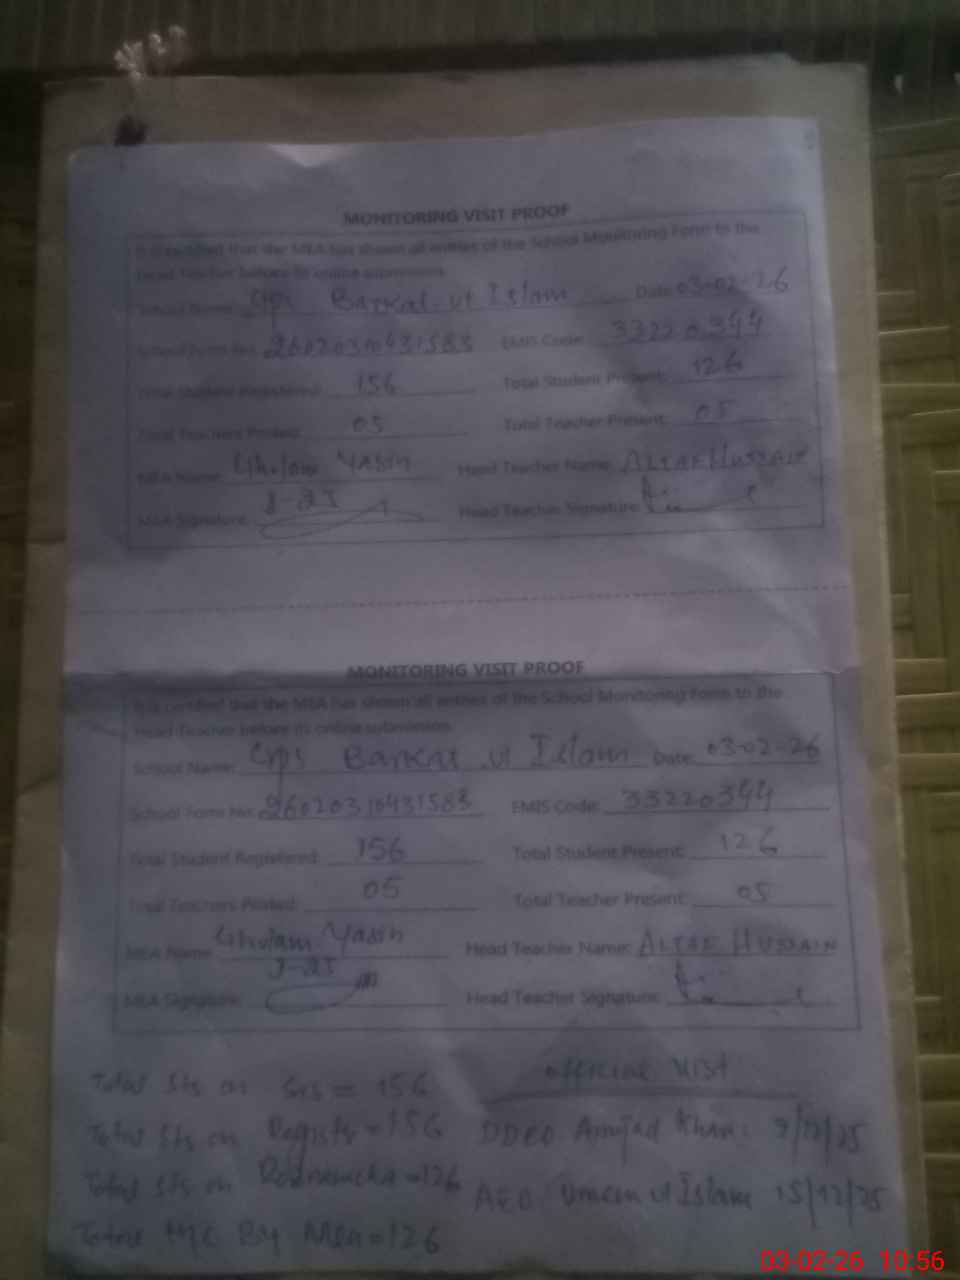 MONITORING VISIT PROOF
It is certified that the MEA has shown all entries of the School Monitoring Form to the
Head Teacher before its online submission.
School Name: Gps Barkat ut Islam Date: 03-02-26
School Form No. 26020310431583 EMIS Code: 33220344
Total Student Registered: 156 Total Student Present: 126
Total Teachers Posted: 05 Total Teacher Present: 05
MEA Name: Ghulam Yasin Head Teacher Name: ALTAF HUSSAIN
MEA Signature: Head Teacher Signature:
MONITORING VISIT PROOF
It is certified that the MEA has shown all entries of the School Monitoring Form to the
Head Teacher before its online submission.
School Name: Gps Barkat ut Islam Date: 03-02-26
School Form No. 26020310431583 EMIS Code: 33220344
Total Student Registered: 156 Total Student Present: 126
Total Teachers Posted: 05 Total Teacher Present: 05
MEA Name: Ghulam Yasin Head Teacher Name: ALTAF HUSSAIN
MEA Signature: Head Teacher Signature:
official Visit
Total Sts on Sis = 156
Total Sts on = 156 DDEO Amjad Khan: 9/12/25
Total Sts on = 126 AEO ut Islam 15/12/25
Total H/C By Mea = 126
03-02-26 10:56